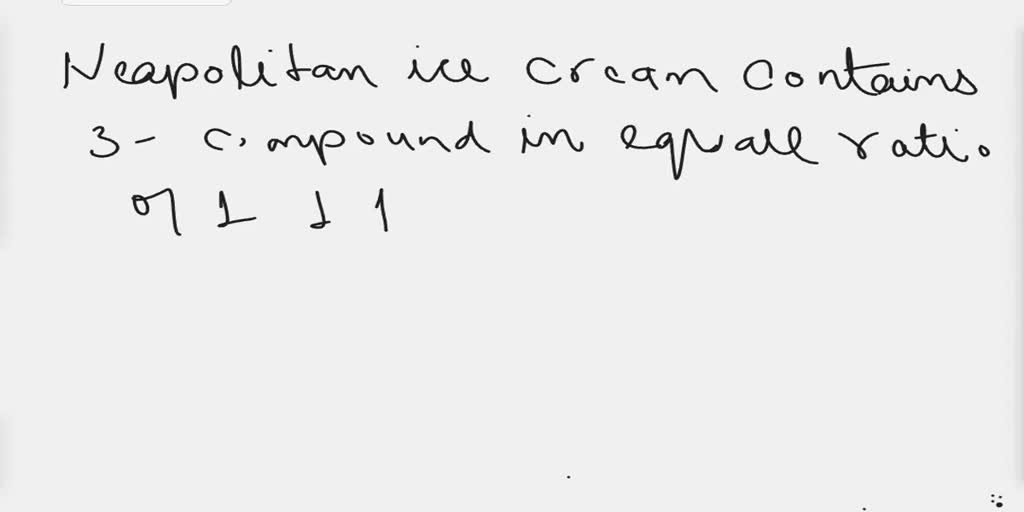 Neapolitan ice cream contains
3- compound in equall ratio
of 1 1 1